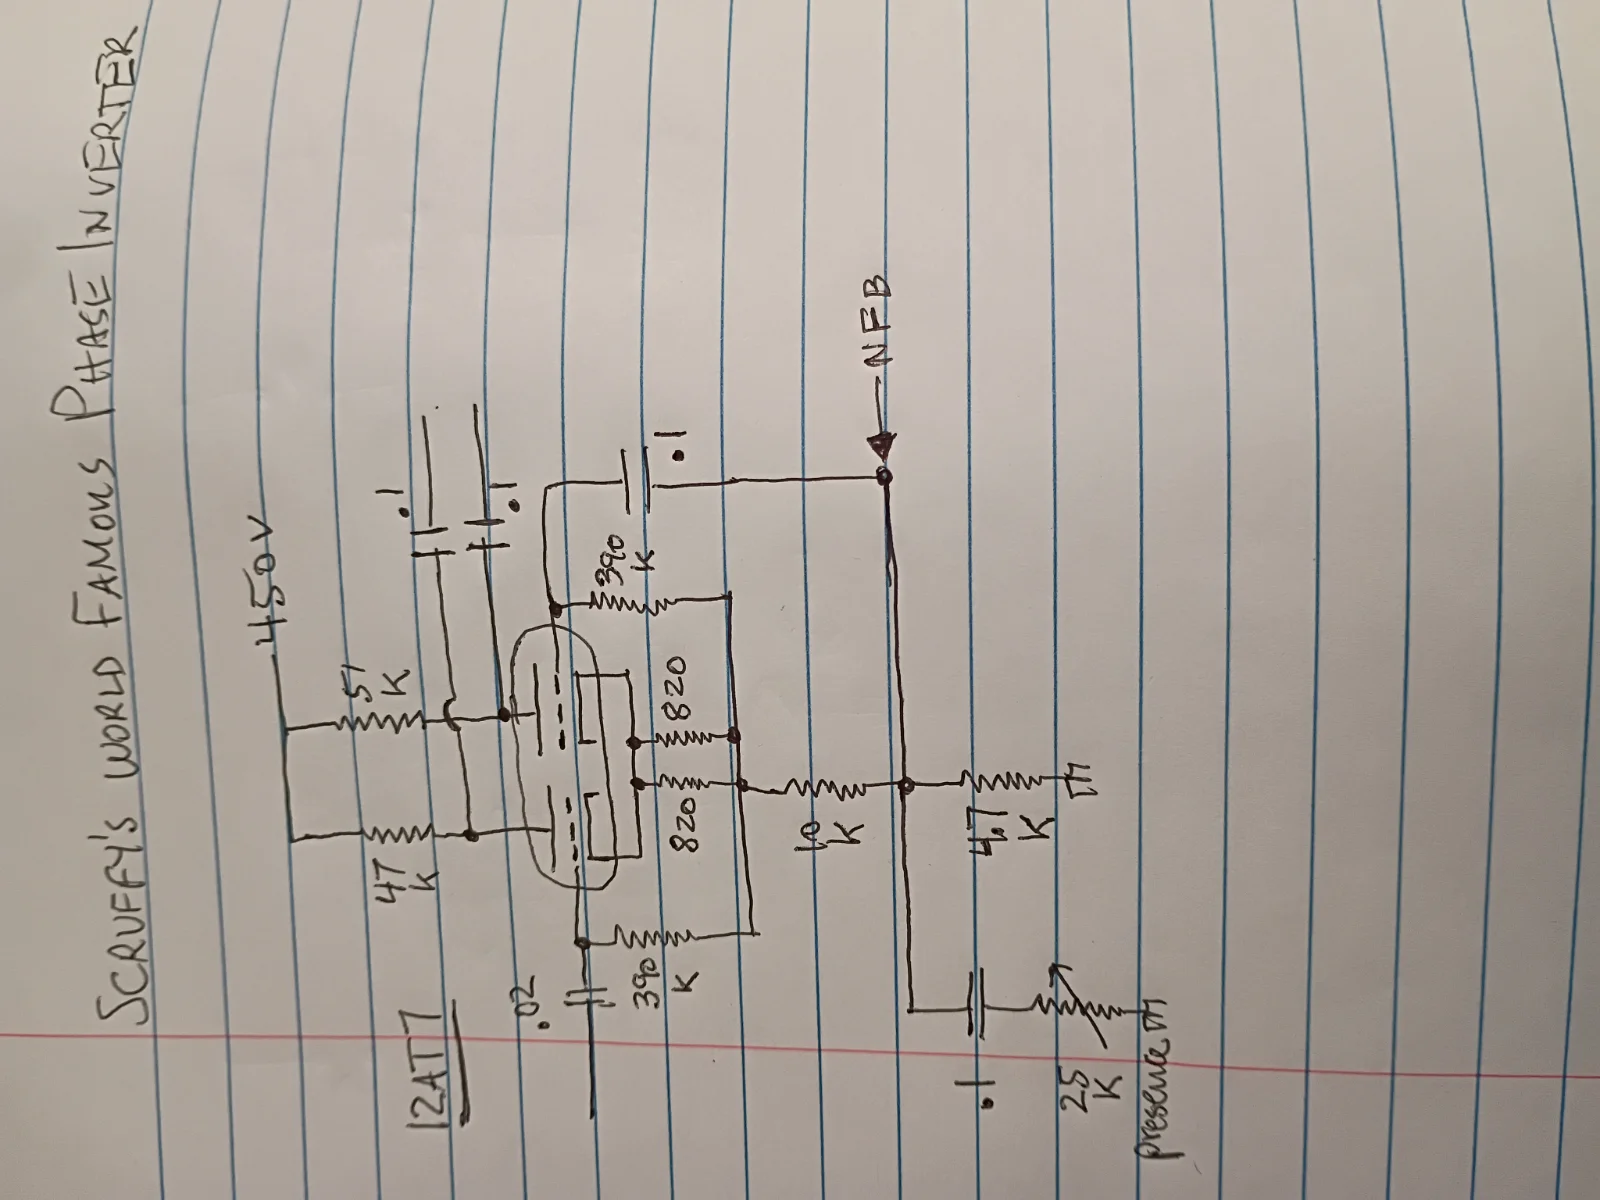 SCRUFFY'S WORLD FAMOUS PHASE INVERTER
450V
47
K
51
K
.1
.1
12AT7
.02
390
K
820
820
390
K
.1
10
K
NFB
4.7
K
.1
25
K
presence